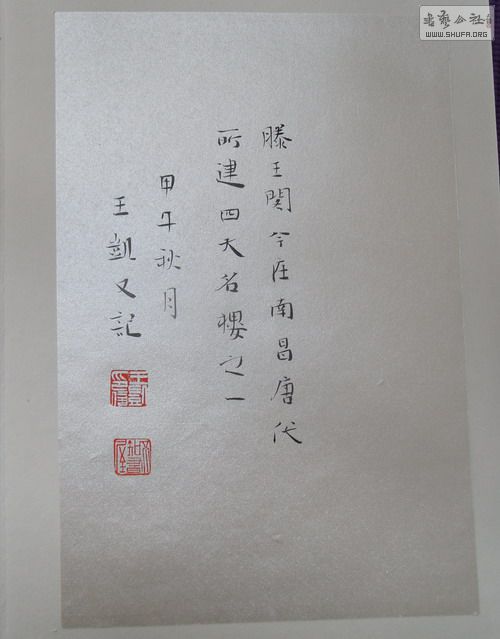 滕王閣今在南昌唐代
所建四大名樓之一
甲午秋月
王凱又記
書藝公社
WWW.SHUFA.ORG